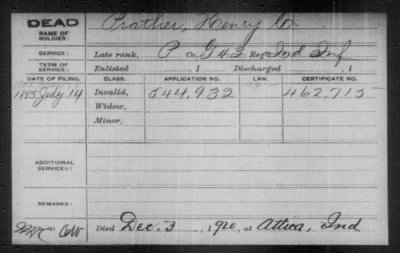 DEAD
NAME OF SOLDIER: Prather, Henry
SERVICE: Late rank, P Co. G 43 Reg't Ind Inf
TERM OF SERVICE: Enlisted , 1 Discharged , 1
DATE OF FILING. CLASS. APPLICATION NO. LAW. CERTIFICATE NO.
1885 July 14 Invalid, 544,932 462,715
Widow,
Minor,
ADDITIONAL SERVICES:
REMARKS:
Died Dec. 3, 1920, at Attica, Ind